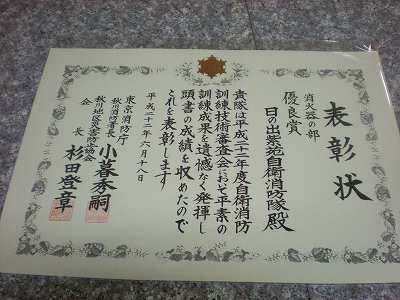 表彰状
消火器の部
優良賞
日の出紫苑自衛消防隊殿
貴隊は平成二十二年度自衛消防
訓練技術審査会において平素の
訓練成果を遺憾なく発揮し
頭書の成績を収めたので
これを表彰します
平成二十二年六月十八日
東京消防庁
秋川消防署長 小暮秀嗣
秋川地区災害防止協会
会長 杉田登章